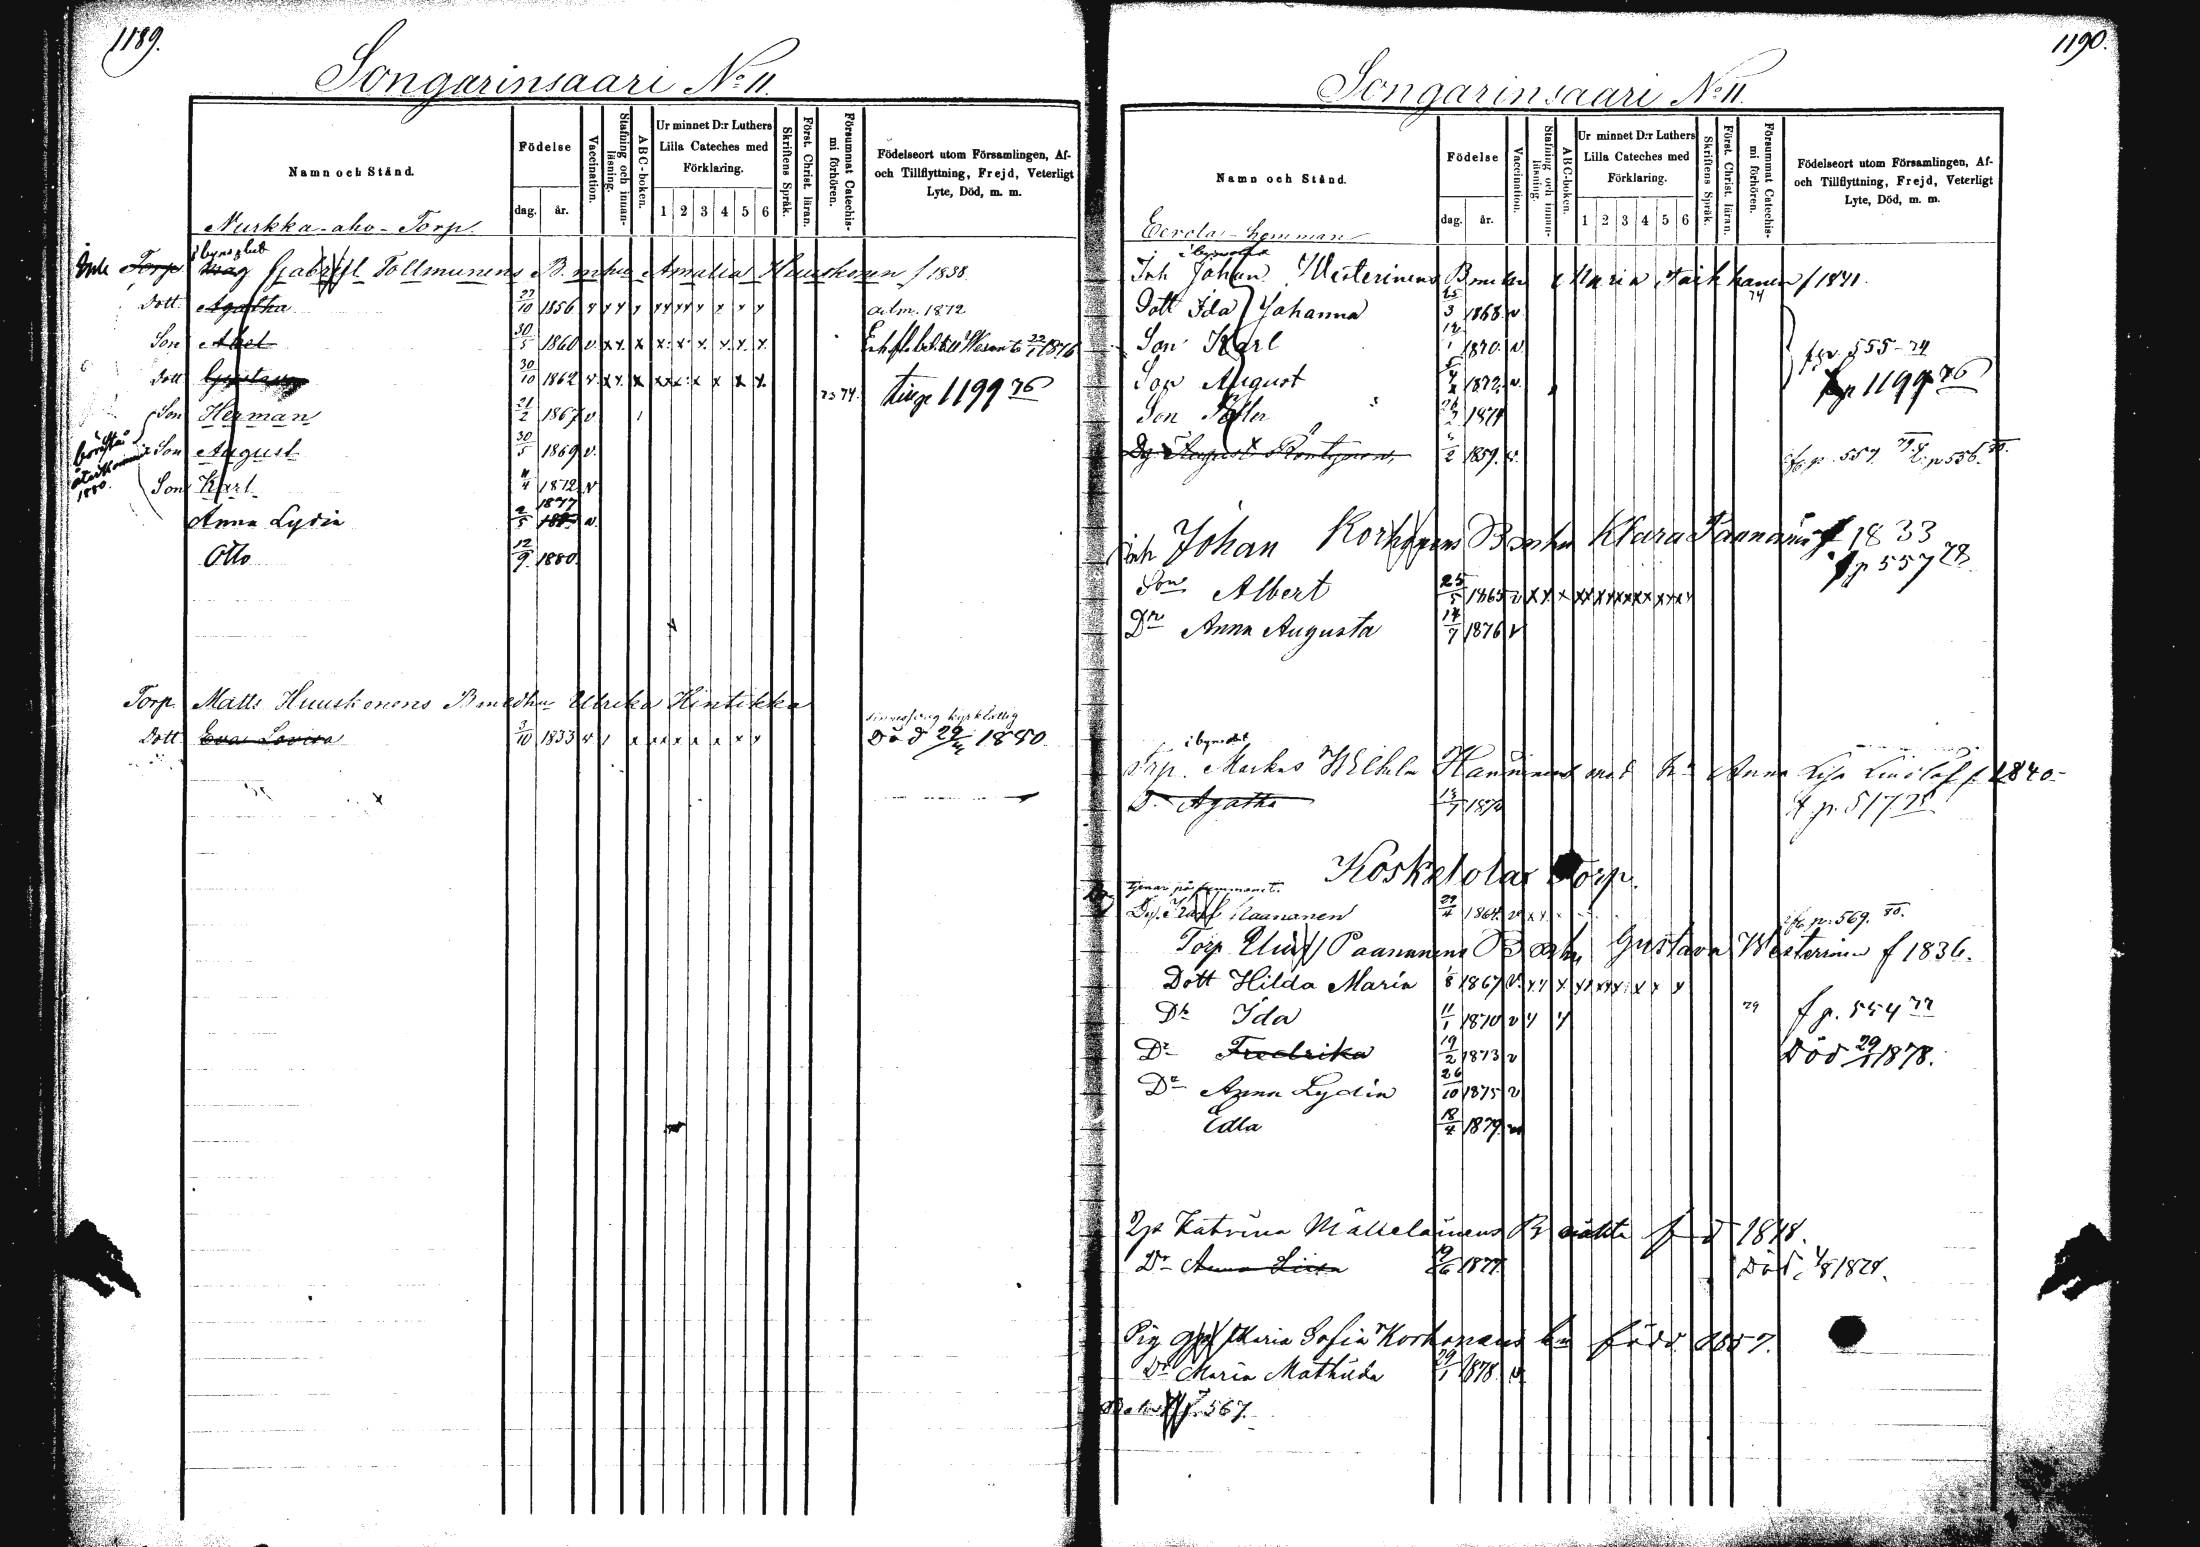 1189.
Songarinsaari No 11.
Namn och Stånd.
Födelse
dag. år.
Vaccination.
Stafning och innan-läsning.
ABC-boken.
Ur minnet D:r Luthers Lilla Cateches med Förklaring.
1 2 3 4 5 6
Skriftens Språk.
Först. Christ. läran.
Försummat Catechis-mi förhören.
Födelseort utom Församlingen, Af-
och Tillflyttning, Frejd, Veterligt
Lyte, Död, m. m.
Nurkka-aho-Torp
Torp Gabriel Tollmunens B. m hu Amalia Huuskonen f 1838
Dott Agatha 22/10 1856 v x x x x x x x x x x adm. 1872
Son Abel 30/5 1860 v x x x x x x x x x 22/1 1876
Dott Gustava 30/10 1862 v x x x x x x x x x 73 74. 1199 76
Son Herman 21/2 1867 v
Son August 30/5 1869 v.
Son Karl 4/4 1872 v
1880.
Anna Lydia 2/5 1877 v.
Otto 12/9 1880.
Torp. Matts Huuskonens B medhu Ulrika Hintikka
Dott Eva Lovisa 3/10 1833 v x x x x x x x
Död 1880
1190.
Songarinsaari No 11.
Namn och Stånd.
Födelse
dag. år.
Vaccination.
Stafning och innan-läsning.
ABC-boken.
Ur minnet D:r Luthers Lilla Cateches med Förklaring.
1 2 3 4 5 6
Skriftens Språk.
Först. Christ. läran.
Försummat Catechis-mi förhören.
Födelseort utom Församlingen, Af-
och Tillflyttning, Frejd, Veterligt
Lyte, Död, m. m.
Eerola-hemman
Inh Johan Westerinens B m hu Maria f 1841.
Dott Ida Johanna 25/3 1868. v
Son Karl 1870. v. 555-74
Son August 1872. v. 1199 76
Son 1874
Dg August 2 1859. v. p. 557 p 556.
Inh Johan Korhonens B m hu Klara Paananen f 1833
f p 557 78
Son Albert 25/5 1865 v x x x x x x x x x x
Dr Anna Augusta 14/7 1876 v
Torp. Markus Wilhelm med hu Anna f. 1840-
D. Agatha 13/7 1870 f p. 517 75
Koskelola Torp.
Karl Paananen 29/4 1864 v x x p. 569. 80.
Torp Paananens B m hu Gustava Westerinen f 1836.
Dott Hilda Maria 1/8 1867 v. x x x x x x x x x
Dr Ida 11/1 1870 v 79 f p. 554 77
Dr Fredrika 19/2 1873 v Död 29/1 1878.
Dr Anna Lydia 26/10 1875 v
Edla 18/4 1879.
Katrina Mällelainens B f d 1848.
Dr Anna Liisa 19/6 1877 Död.
Pig Maria Sofia Korhonens född 1857.
Dr Maria Mathilda 29/1 1878. v
f. 567.